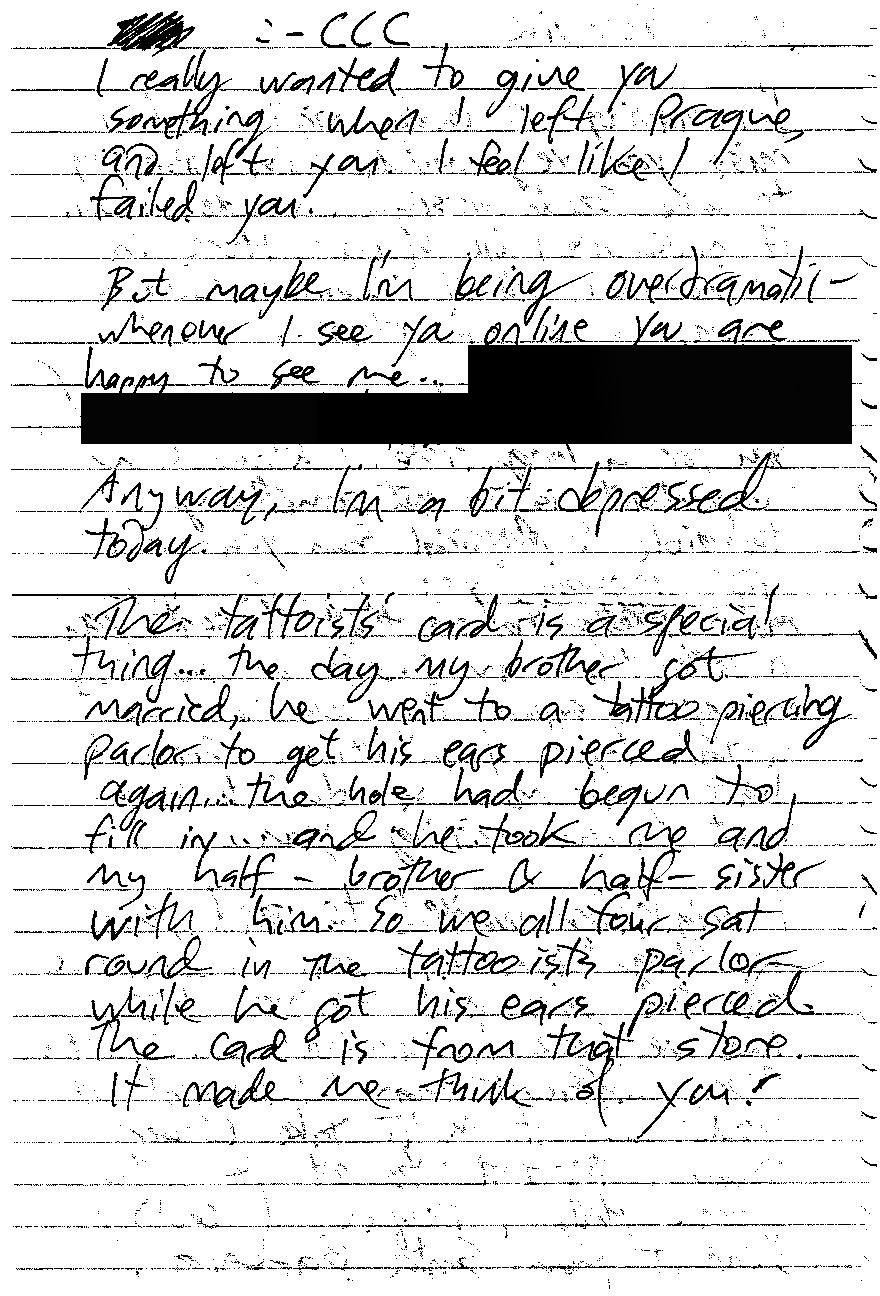 :-CCC
I really wanted to give you
something when I left Prague,
and left you. I feel like I
failed you.
But maybe I'm being overdramatic-
whenever I see ya online you are
happy to see me...
Anyway, I'm a bit depressed
today.
The tattoists' card is a special
thing... the day my brother got
married, he went to a tattoo piercing
parlor to get his ears pierced
again... the hole had begun to
fill in... and he took me and
my half-brother & half-sister
with him. So we all four sat
round in the tattooists parlor
while he got his ears pierced.
The card is from that store.
It made me think of you!